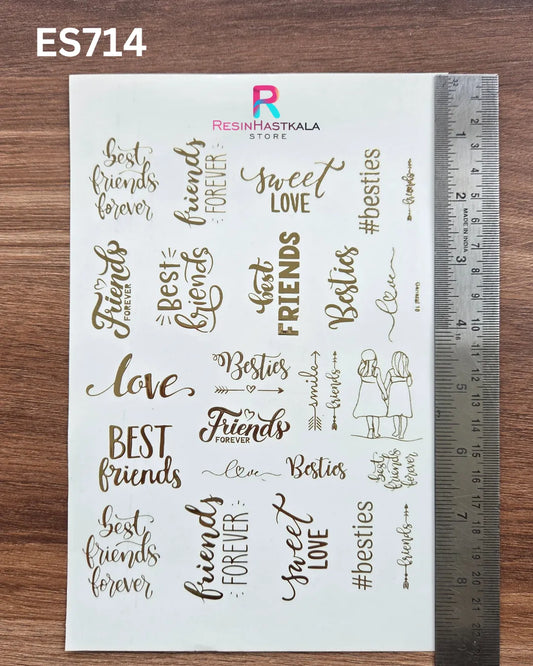 ES714
R
RESINHASTKALA
STORE
best
friends
forever
friends
FOREVER
sweet
LOVE
#besties
friends
Friends
FOREVER
Best
friends
best
FRIENDS
Besties
love
love
Besties
smile
friends
BEST
friends
Friends
FOREVER
love
Besties
best
friends
forever
best
friends
forever
friends
FOREVER
sweet
LOVE
#besties
friends
1
2
MADE IN INDIA
3
4
5
6
7
8
1
2
3
4
5
6
7
8
9
10
11
12
13
14
15
16
17
18
19
20
21